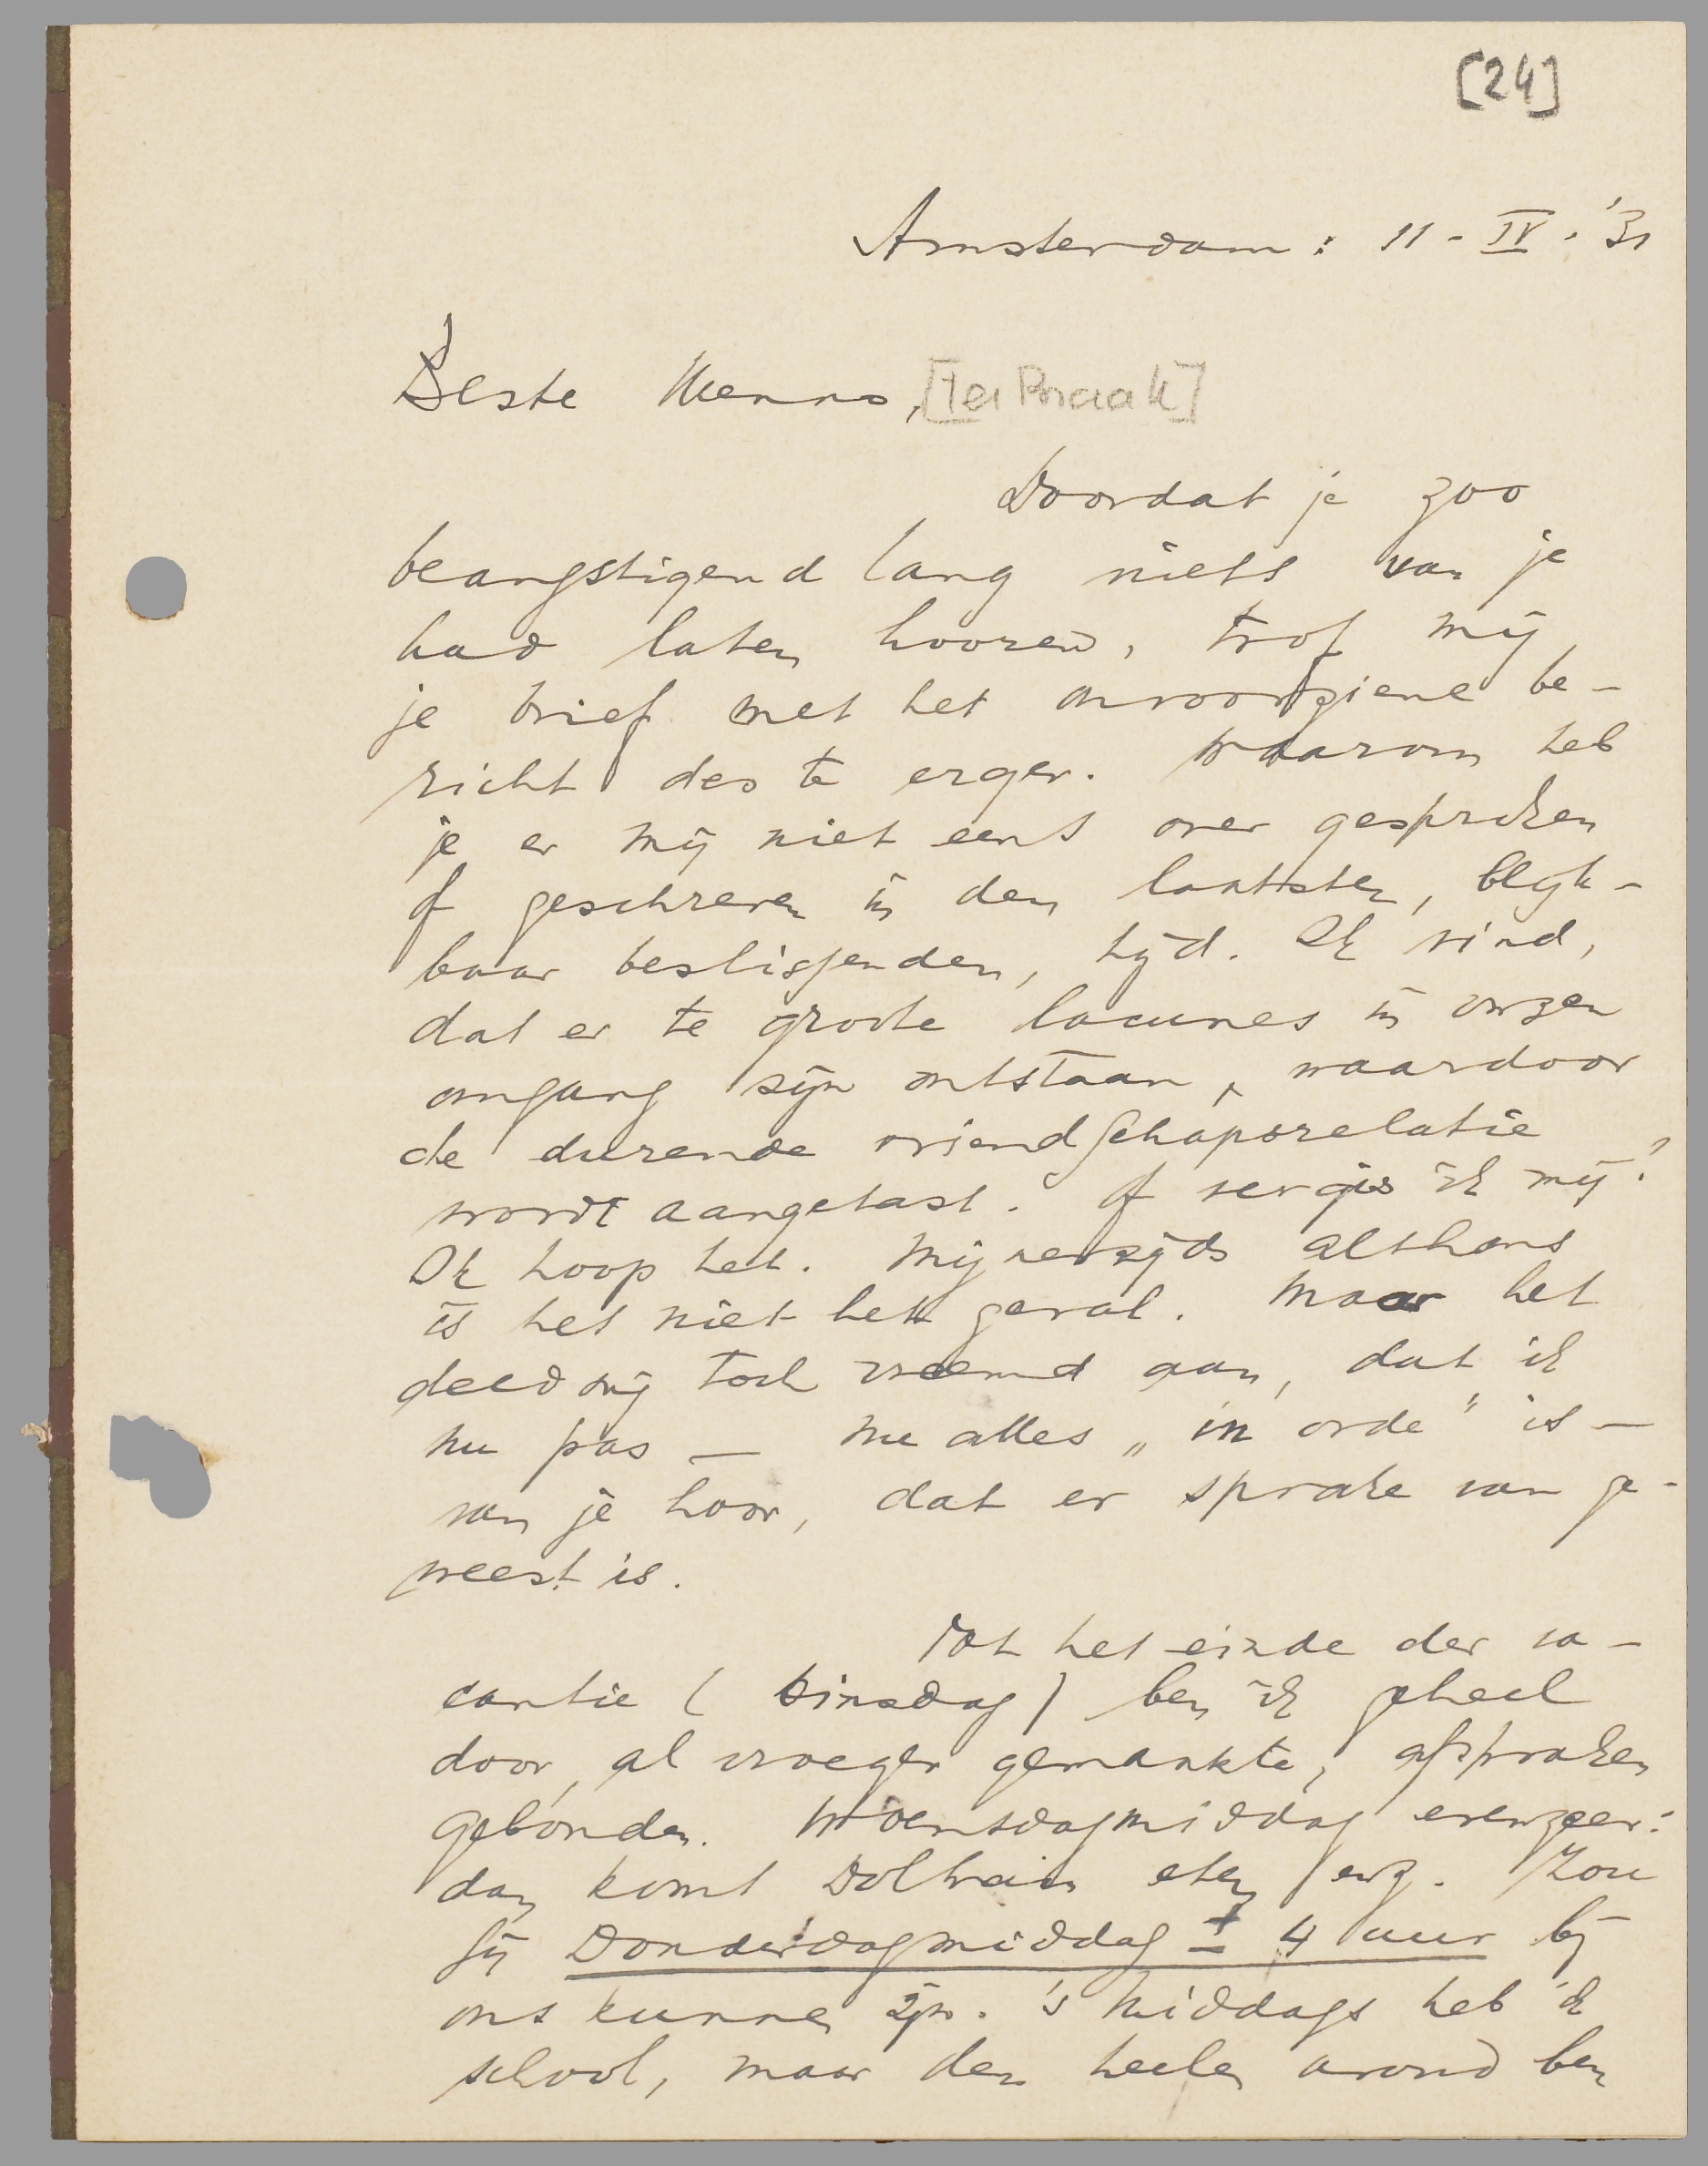 [24]
Amsterdam: 11-IV-'31
Beste Menno, [ter Braak]
Doordat je zoo
beangstigend lang niets van je
had laten hooren, trof mij
je brief met het onvoorziene be-
richt des te erger. Waarom heb
je er mij niet eens over gesproken
of geschreven in den laatsten, blijk-
baar beslissenden, tijd. Ik vind,
dat er te groote lacunes in onzen
omgang zijn ontstaan, waardoor
de durende vriendschapsrelatie
wordt aangetast. Of vergis ik mij?
Ik hoop het. Mijnerzijds althans
is het niet het geval. Maar het
deed mij toch vreemd aan, dat ik
nu pas — nu alles „in orde" is —
van je hoor, dat er sprake van ge-
weest is.
Tot het einde der va-
cantie (Dinsdag) ben ik geheel
door, al vroeger gemaakte, afspraken
gebonden. Woensdagmiddag evenzeer:
dan komt Dolhain eten enz. Zou
jij Donderdagmiddag ± 4 uur bij
ons kunnen zijn. 's Middags heb ik
school, maar den heelen avond ben